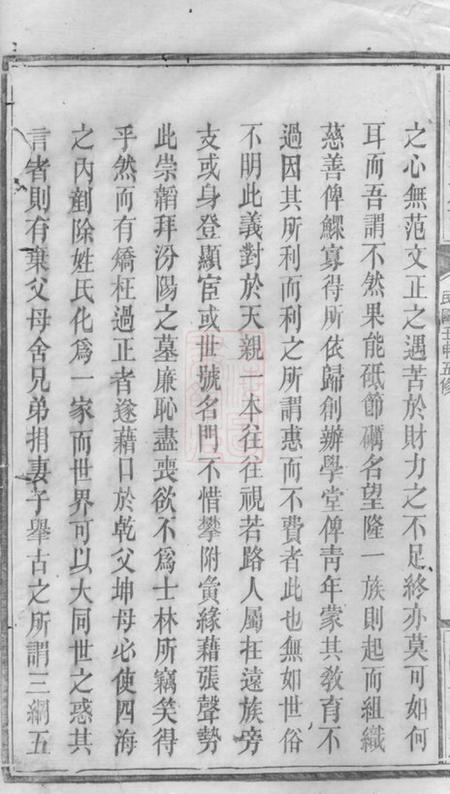 之心無范文正之遇苦於財力之不足終亦莫可如何
耳而吾謂不然果能砥節礪名望隆一族則起而組織
慈善俾鰥寡得所依歸創辦學堂俾靑年蒙其敎育不
過因其所利而利之所謂惠而不費者此也無如世俗
不明此義對於天親一本往往視若路人屬在遠族旁
支或身登顯宦或世號名門不惜攀附夤緣藉張聲勢
此崇韜拜汾陽之墓廉恥盡喪欲不爲士林所竊笑得
乎然而有矯枉過正者遂藉口於乾父坤母必使四海
之內剷除姓氏化爲一家而世界可以大同世之惑其
言者則有棄父母舍兄弟捐妻子舉古之所謂三綱五
民國壬申五修